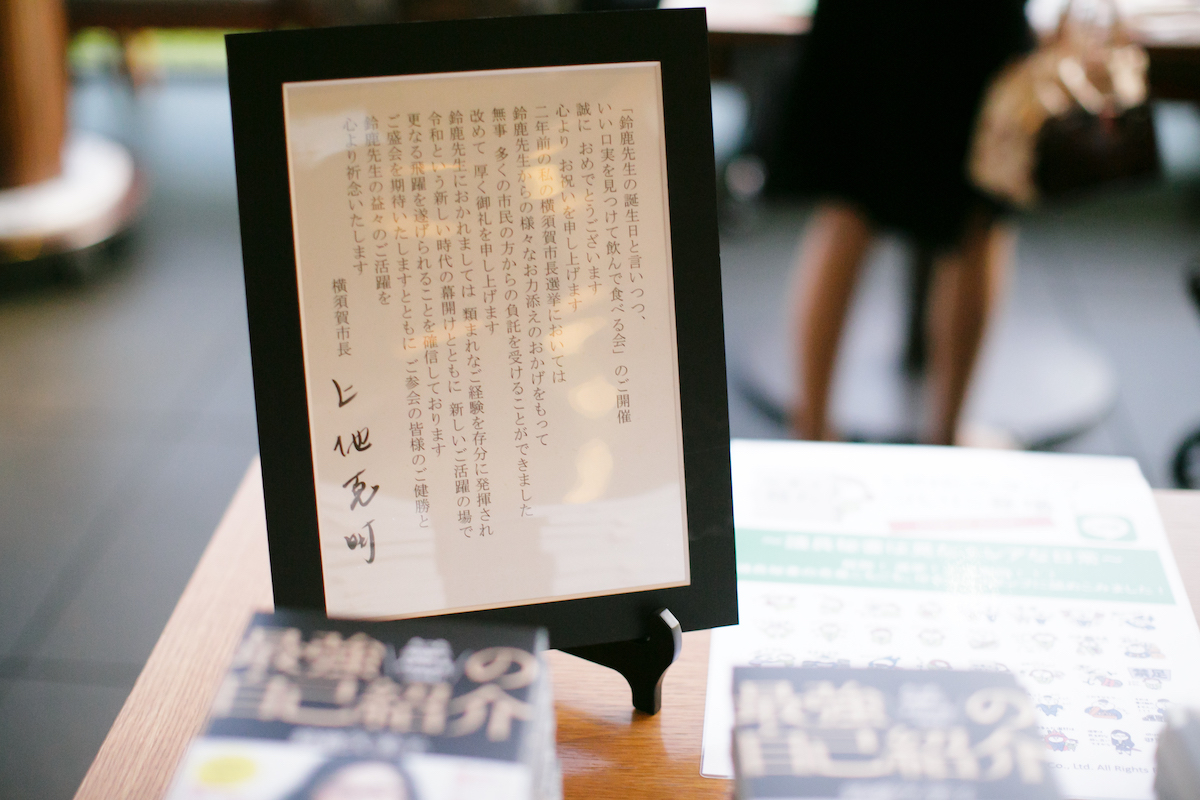 「鈴鹿先生の誕生日と言いつつ、
いい口実を見つけて飲んで食べる会」のご開催
誠に おめでとうございます
心より お祝いを申し上げます
二年前の私の横須賀市長選挙においては
鈴鹿先生からの様々なお力添えのおかげをもって
無事 多くの市民の方からの負託を受けることができました
改めて 厚く御礼を申し上げます
鈴鹿先生におかれましては 類まれなご経験を存分に発揮され
令和という新しい時代の幕開けとともに 新しいご活躍の場で
更なる飛躍を遂げられることを確信しております
ご盛会を期待いたしますとともに ご参会の皆様のご健勝と
鈴鹿先生の益々のご活躍を
心より祈念いたします
横須賀市長 上地克明
最強の
自己紹介
最強の
自己紹介
Co., Ltd. All Rights